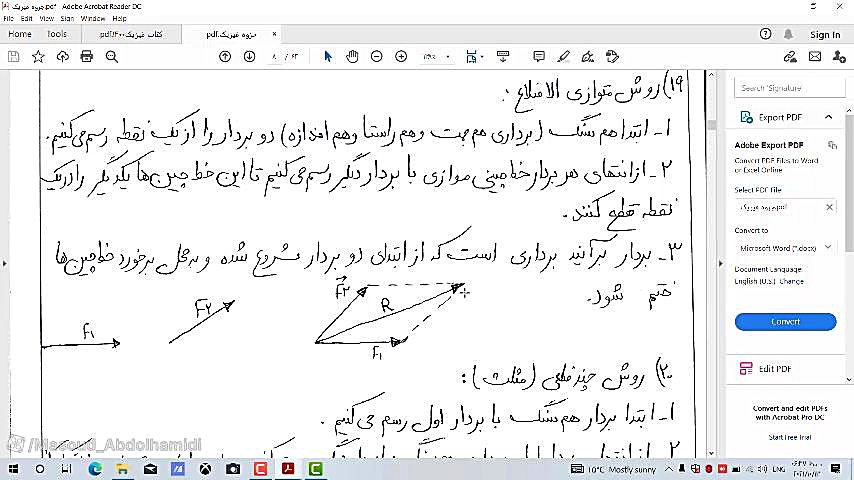 جزوه فیزیک.pdf - Adobe Acrobat Reader DC
File Edit View Sign Window Help
Home Tools کتاب فیزیک۱۴۰۰.pdf جزوه فیزیک.pdf × Sign In
۸ / ۶۳
۱۹) روش متوازی الاضلاع :
۱- ابتدا هم سنگ (برداری هم جهت و هم راستا و هم اندازه) دو بردار را از یک نقطه رسم می کنیم.
۲- از انتهای هر بردار خط چینی موازی با بردار دیگر رسم می کنیم تا این خط چین ها یکدیگر را در یک
نقطه قطع کنند.
۳- بردار برآیند برداری است که از ابتدای دو بردار شروع شده و به محل برخورد خط چین ها
ختم شود.
F۱ F۲ F۲ R F۱
۲۰) روش چندضلعی (مثلث) :
۱- ابتدا بردار هم سنگ با بردار اول رسم می کنیم.
Search 'Signature'
Export PDF
Adobe Export PDF
Convert PDF Files to Word
or Excel Online
Select PDF File
جزوه فیزیک.pdf ×
Convert to
Microsoft Word (*.docx)
Document Language:
English (U.S.) Change
Convert
Edit PDF
Convert and edit PDFs
with Acrobat Pro DC
Start Free Trial
@/Masoud_Abdolhamidi
10°C Mostly sunny